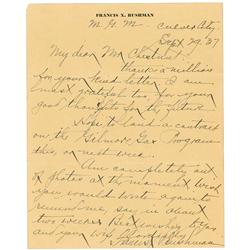 FRANCIS X. BUSHMAN
M. G. M. Culver City
Sept 29, 37
My dear Mr Chestnut:
Thanks a million
for your kind letter. I am
most grateful too, for your
good thoughts for my future
Hope to land a contract
on the Gilmore Gas Program
this, or next week.
Am completely out
of photos at the moment. Wish
you would write again to
remind me, say in about
two weeks. Best wishes to you
and yours. Cordially
Francis X Bushman